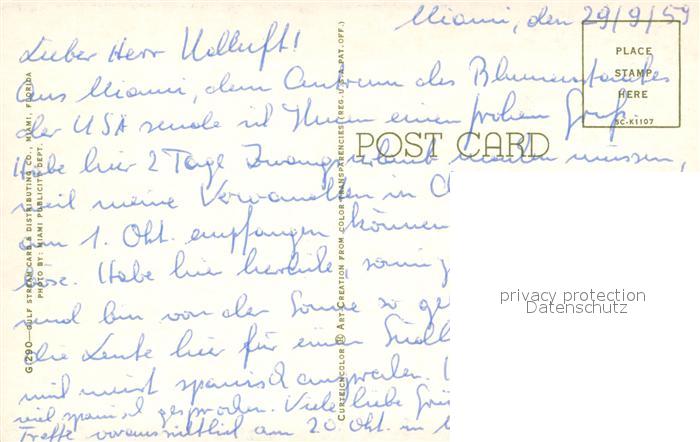 Miami, den 29/9/59
Lieber Herr Udluft!
Aus Miami, dem Centrum des Blumenstaates
der USA sende ich Ihnen einen frohen Gruß.
Habe hier 2 Tage Zwangsurlaub machen müssen,
weil meine Verwandten in
am 1. Okt. empfangen können
böse. Habe hier herrliche, sonnige
und bin von der Sonne so
die Leute hier für einen
und meist spanisch ansprechen.
viel spanisch gesprochen. Viele liebe
Treffe voraussichtlich am 20. Okt. in
PLACE
STAMP
HERE
SC-K1107
POST CARD
G-290—GULF STREAM CARD & DISTRIBUTING CO., MIAMI, FLORIDA
PHOTO BY: MIAMI PUBLICITY DEPT.
CURTEICHCOLOR ® ART CREATION FROM COLOR TRANSPARENCIES (REG. U.S.A. PAT. OFF.)
privacy protection
Datenschutz